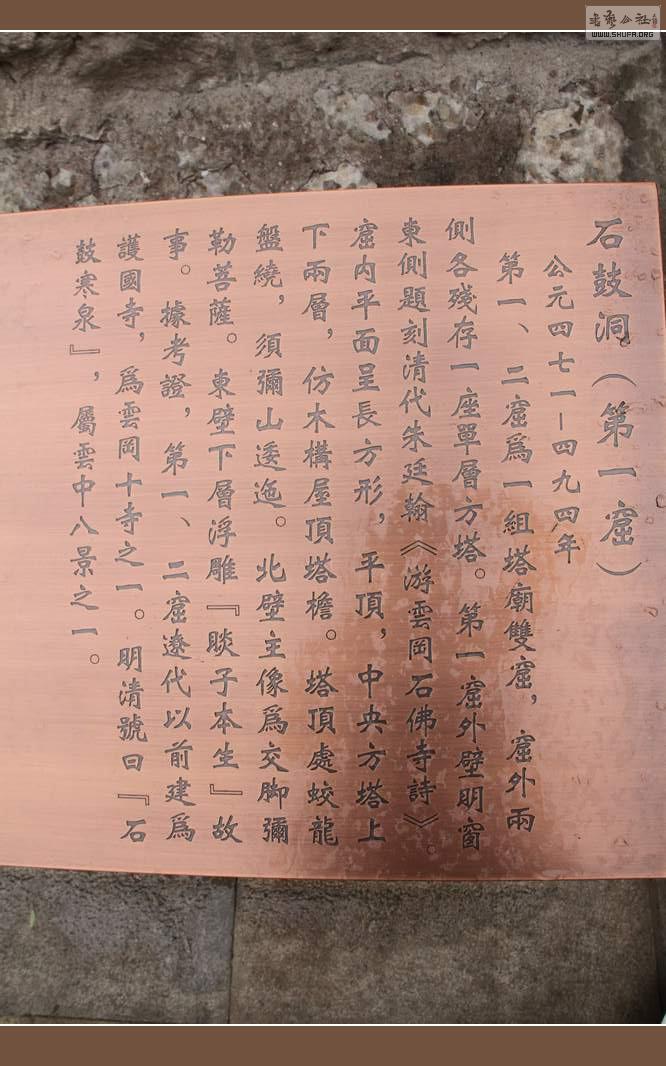 石鼓洞（第一窟）
公元四七一—四九四年
第一、二窟爲一組塔廟雙窟，窟外兩
側各殘存一座單層方塔。第一窟外壁明窗
東側題刻清代朱廷翰《游雲岡石佛寺詩》。
窟内平面呈長方形，平頂，中央方塔上
下兩層，仿木構屋頂塔檐。塔頂處蛟龍
盤繞，須彌山逶迤。北壁主像爲交脚彌
勒菩薩。東壁下層浮雕『睒子本生』故
事。據考證，第一、二窟遼代以前建爲
護國寺，爲雲岡十寺之一。明清號曰『石
鼓寒泉』，屬雲中八景之一。
WWW.SHUFA.ORG